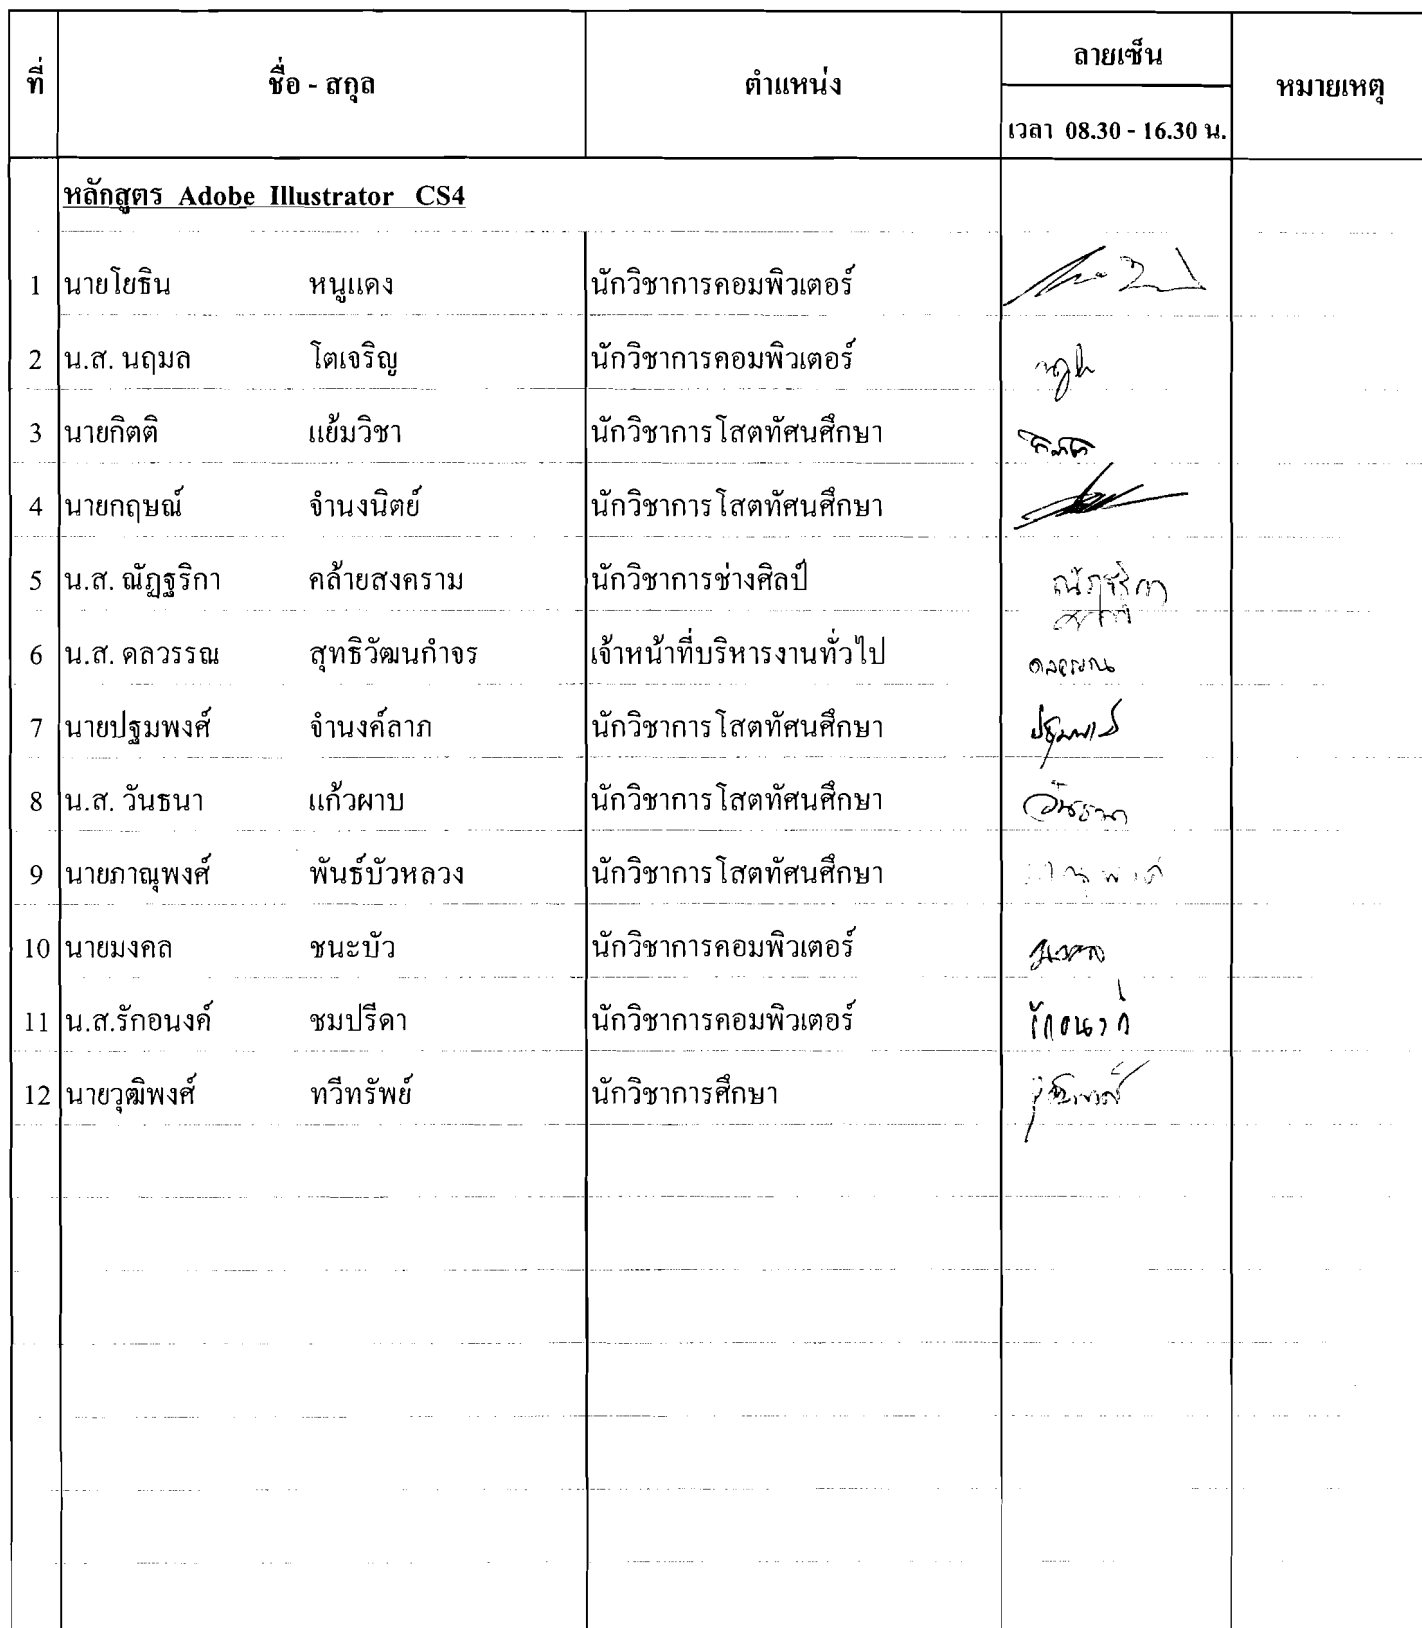 ที่ ชื่อ - สกุล ตำแหน่ง ลายเซ็น หมายเหตุ
เวลา 08.30 - 16.30 น.
หลักสูตร Adobe Illustrator CS4
1 นายโยธิน หนูแดง นักวิชาการคอมพิวเตอร์
2 น.ส. นฤมล โตเจริญ นักวิชาการคอมพิวเตอร์
3 นายกิตติ แย้มวิชา นักวิชาการโสตทัศนศึกษา
4 นายกฤษณ์ จำนงนิตย์ นักวิชาการโสตทัศนศึกษา
5 น.ส. ณัฏฐริกา คล้ายสงคราม นักวิชาการช่างศิลป์ ณัฏฐริกา
6 น.ส. ดลวรรณ สุทธิวัฒนกำจร เจ้าหน้าที่บริหารงานทั่วไป ดลวรรณ
7 นายปฐมพงศ์ จำนงค์ลาภ นักวิชาการโสตทัศนศึกษา ปฐมพงศ์
8 น.ส. วันธนา แก้วผาบ นักวิชาการโสตทัศนศึกษา วันธนา
9 นายภาณุพงศ์ พันธ์บัวหลวง นักวิชาการโสตทัศนศึกษา ภาณุพงศ์
10 นายมงคล ชนะบัว นักวิชาการคอมพิวเตอร์ มงคล
11 น.ส.รักอนงค์ ชมปรีดา นักวิชาการคอมพิวเตอร์ รักอนงค์
12 นายวุฒิพงศ์ ทวีทรัพย์ นักวิชาการศึกษา วุฒิพงศ์